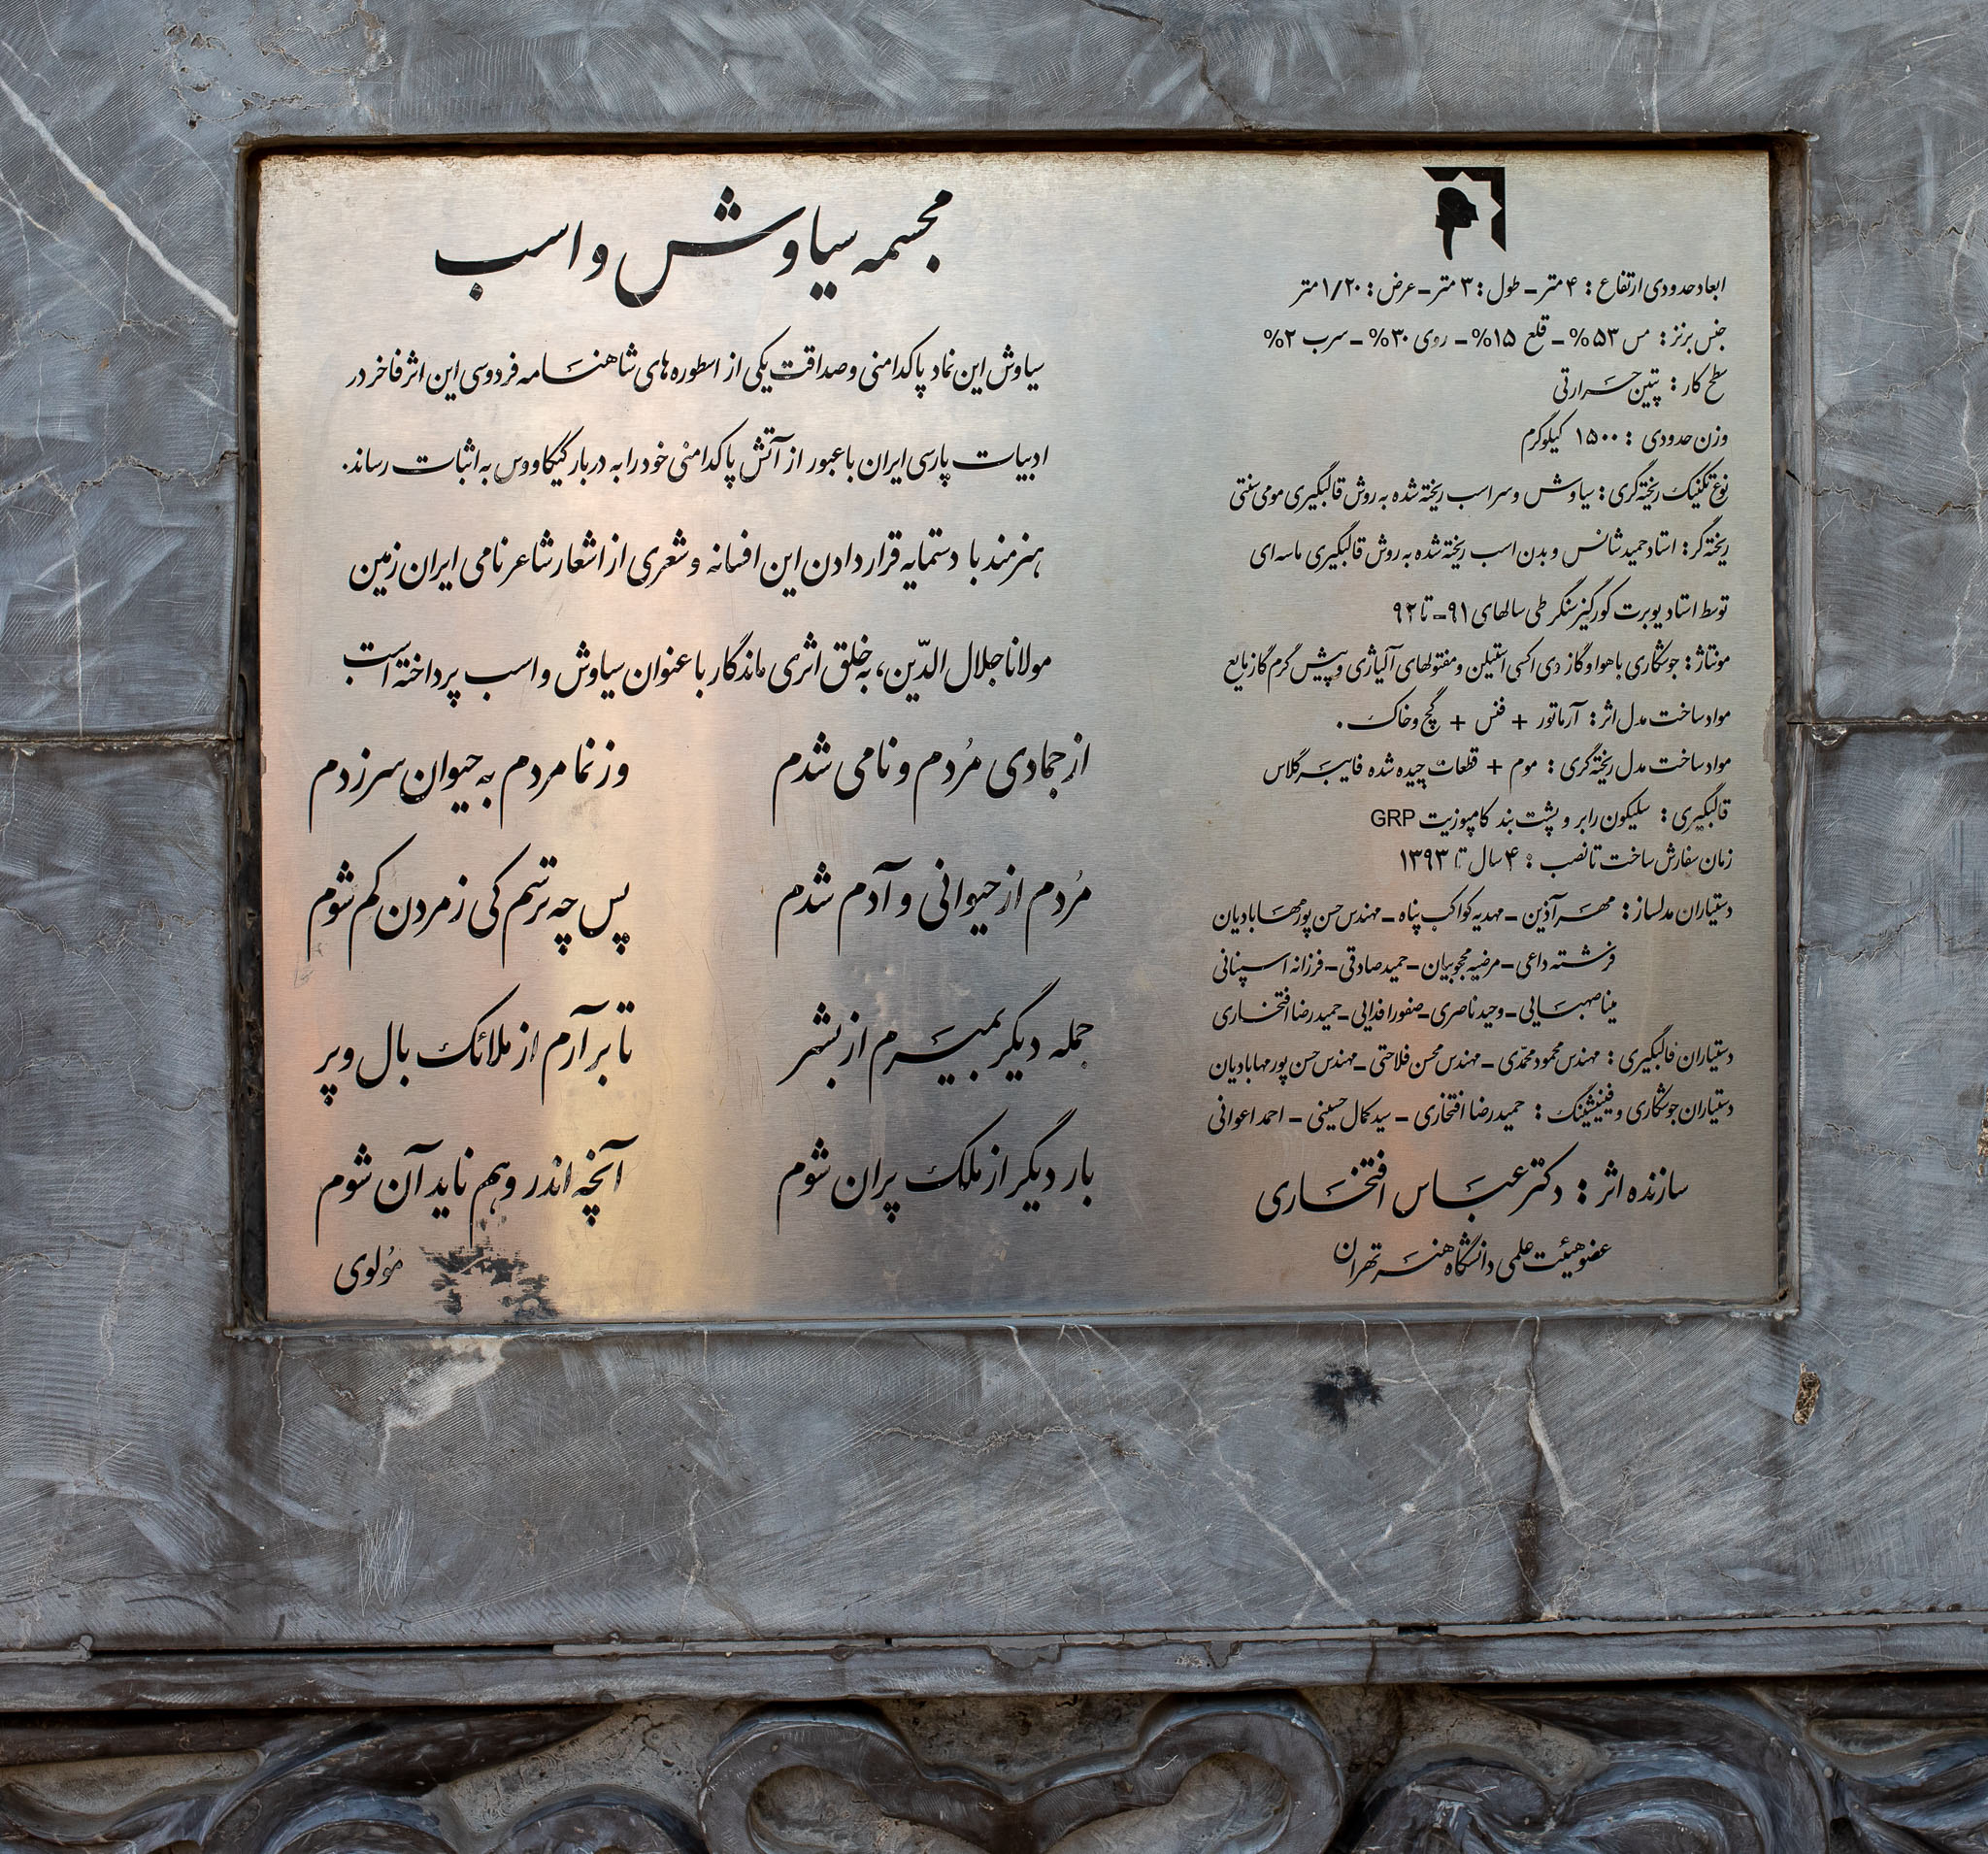 مجسمه سیاوش و اسب
سیاوش این نماد پاکدامنی و صداقت یکی از اسطوره های شاهنامه فردوسی این اثر فاخر در
ادبیات پارسی ایران با عبور از آتش پاکدامنی خود را به دربار کیکاووس به اثبات رساند.
هنرمند با دستمایه قرار دادن این افسانه و شعری از اشعار شاعر نامی ایران زمین
مولانا جلال الدّین، به خلق اثری ماندگار با عنوان سیاوش و اسب پرداخته است
از جمادی مُردم و نامی شدم وز نما مردم به حیوان سر زدم
مُردم از حیوانی و آدم شدم پس چه ترسم کی ز مردن کم شوم
جمله دیگر بمیرم از بشر تا برآرم از ملائک بال و پر
بار دیگر از ملک پران شوم آنچه اندر وهم ناید آن شوم
مُولوی
ابعاد حدودی ارتفاع : ۴ متر - طول : ۳ متر - عرض : ۱/۲۰ متر
جنس برنز : مس ۵۳% - قلع ۱۵% - روی ۳۰% - سرب ۲%
سطح کار : پتین حرارتی
وزن حدودی : ۱۵۰۰ کیلوگرم
نوع تکنیک ریخته گری : سیاوش و سر اسب ریخته شده به روش قالبگیری مومی سنتی
ریخته گر : استاد حمید شانس و بدن اسب ریخته شده به روش قالبگیری ماسه ای
توسط استاد یوبرت کورکیز سنگر طی سالهای ۹۱ - تا ۹۲
مونتاژ : جوشکاری با هوا و گاز دی اکسی استیلن و مفتولهای آلیاژی و پیش گرم گاز مایع
مواد ساخت مدل اثر : آرماتور + فنس + گچ و خاک .
مواد ساخت مدل ریخته گری : موم + قطعات چیده شده فایبرگلاس
قالبگیری : سلیکون رابر و پشت بند کامپوزیت GRP
زمان سفارش ساخت تا نصب : ۴ سال تا ۱۳۹۳
دستیاران مدلساز : مهرآذین - مهدیه کواکب پناه - مهندس حسن پورمهابادیان
فرشته داعی - مرضیه مجوبیان - حمید صادقی - فرزانه اسپنانی
مینا صهبایی - وحید ناصری - صفورا فدایی - حمیدرضا افتخاری
دستیاران قالبگیری : مهندس محمود محمّدی - مهندس محسن فلاحتی - مهندس حسن پورمهابادیان
دستیاران جوشکاری و فینیشینگ : حمیدرضا افتخاری - سید کمال حسینی - احمد اعوانی
سازنده اثر : دکتر عباس افتخاری
عضو هیئت علمی دانشگاه هنر تهران